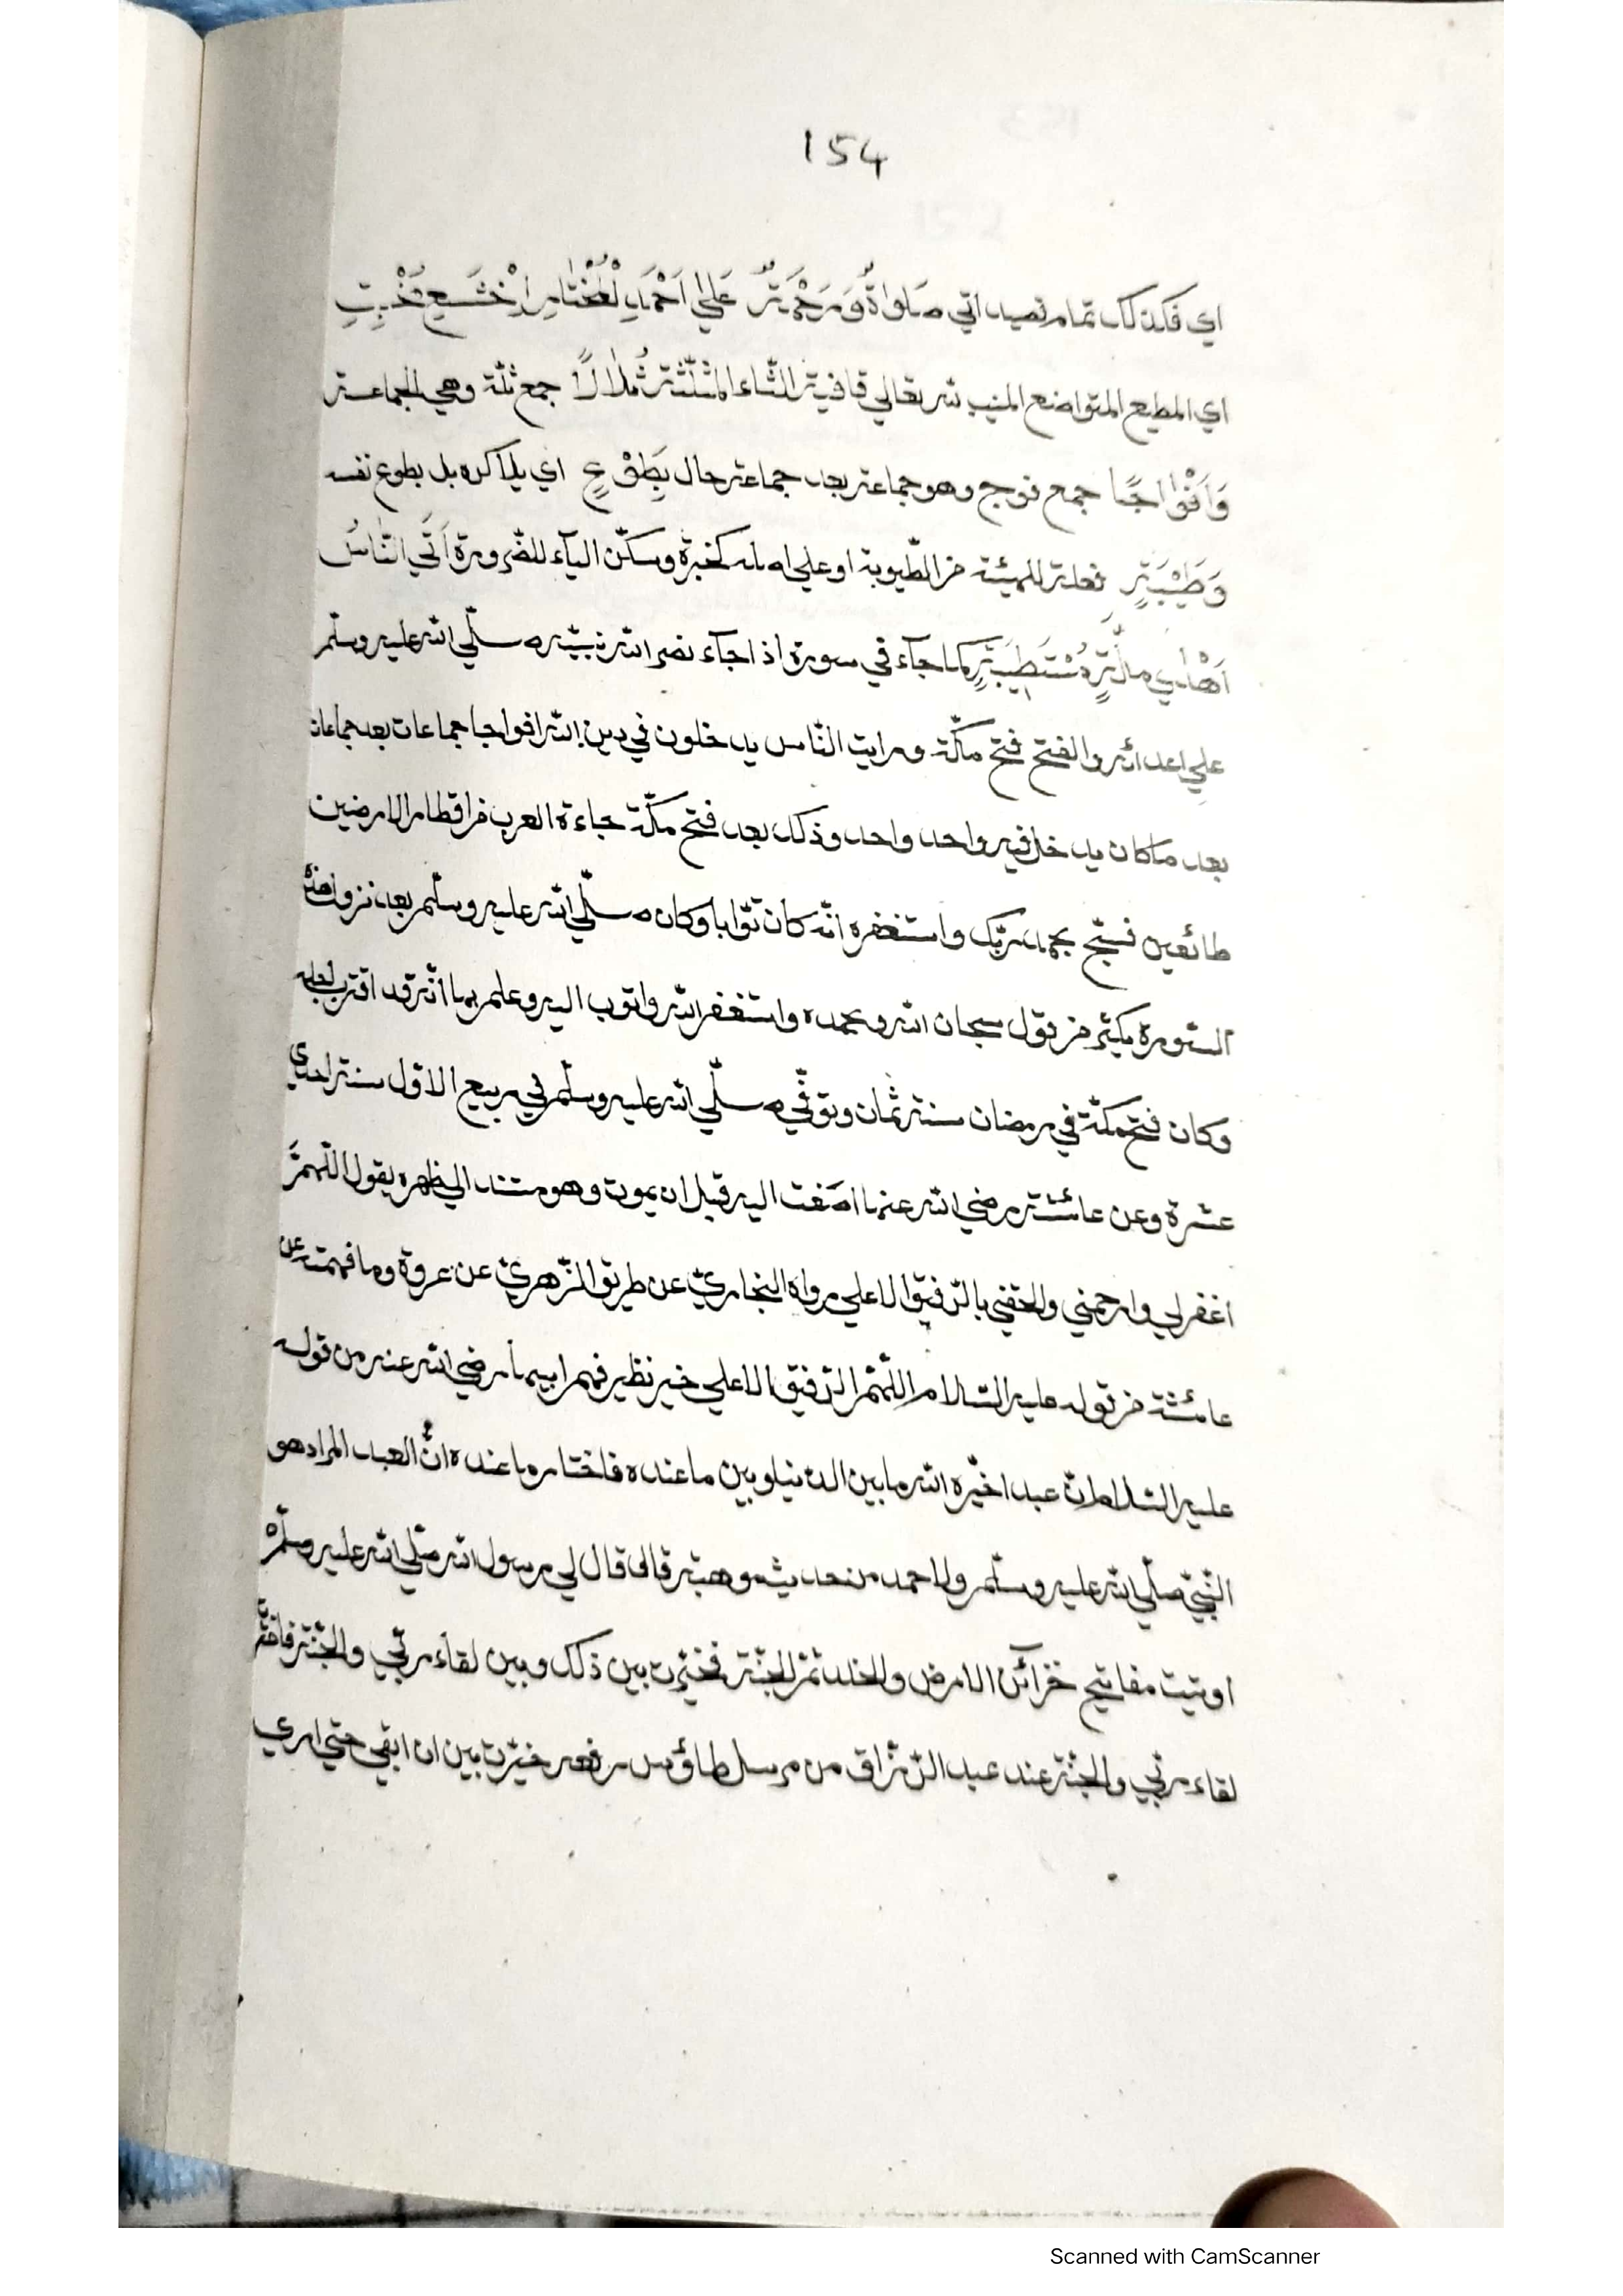 154
اي فكذلك تمام قصيدتي صَلوٰةٌ وَرَحْمَةٌ عَلٰي اَحْمَدِ الْمُخْتَارِ اَخْشَعِ مُخْبِتِ
اي المطيع المتواضع المنيب لله تعالي قافية الثّاء المثلّثة ثُلَلاً جمع ثلّة وهي الجماعة
وَاَفْوَاجًا جمع فوج وهو جماعة بعد جماعة حال بِطَوْعٍ اي بلا كره بل بطوع نفسه
وَطِيْبَةٍ فعلة للهيئة من الطّيوبة او علي اصله كخيرة وسكّن الياء للضّرورة اَتَي النَّاسُ
اَهْلُ مِلَّةٍ مُسْتَطِيْبَةٍ كما جاء في سورة اذا جاء نصر الله نبيّه صلّي الله عليه وسلّم
علي اعدائه والفتح فتح مكّة ورايت النّاس يدخلون في دين الله افواجا جماعات بعد جماعات
بعد ما كان يدخل فيه واحد واحد وذلك بعد فتح مكّة جاءه العرب من اقطار الارضين
طائعين فسبّح بحمد ربّك واستغفره انّه كان توّابا وكان صلّي الله عليه وسلّم بعد نزول هذه
السّورة يكثر من قول سبحان الله وبحمده واستغفر الله واتوب اليه وعلم بها انّه قد اقترب اجله
وكان فتح مكّة في رمضان سنة ثمان وتوفّي صلّي الله عليه وسلّم في ربيع الاوّل سنة احدي
عشرة وعن عائشة رضي الله عنها اصغت اليه قبل ان يموت وهو مستند الي ظهره يقول اللّهمّ
اغفرلي وارحمني والحقني بالرّفيق الاعلي رواه البخاريّ عن طريق الزّهريّ عن عروة وما فهمته عن
عائشة من قوله عليه السّلام اللّهمّ الرّفيق الاعلي خير نظير فهم ابيها رضي الله عنه من قوله
عليه السّلام انّ عبدا خيّره الله ما بين الدّنيا وبين ما عنده فاختار ما عنده انّ العبد المراد هو
النّبيّ صلّي الله عليه وسلّم ولاحمد من حديث موهبة قال قال لي رسول الله صلّي الله عليه وسلّم
اوتيت مفاتيح خزائن الارض والخلد ثمّ الجنّة فخيّرت بين ذلك وبين لقاء ربّي والجنّة فاخترت
لقاء ربّي والجنّة عند عبد الرّزّاق من مرسل طاؤس رفعه خيّرت بين ان ابقي حتّي اري
Scanned with CamScanner